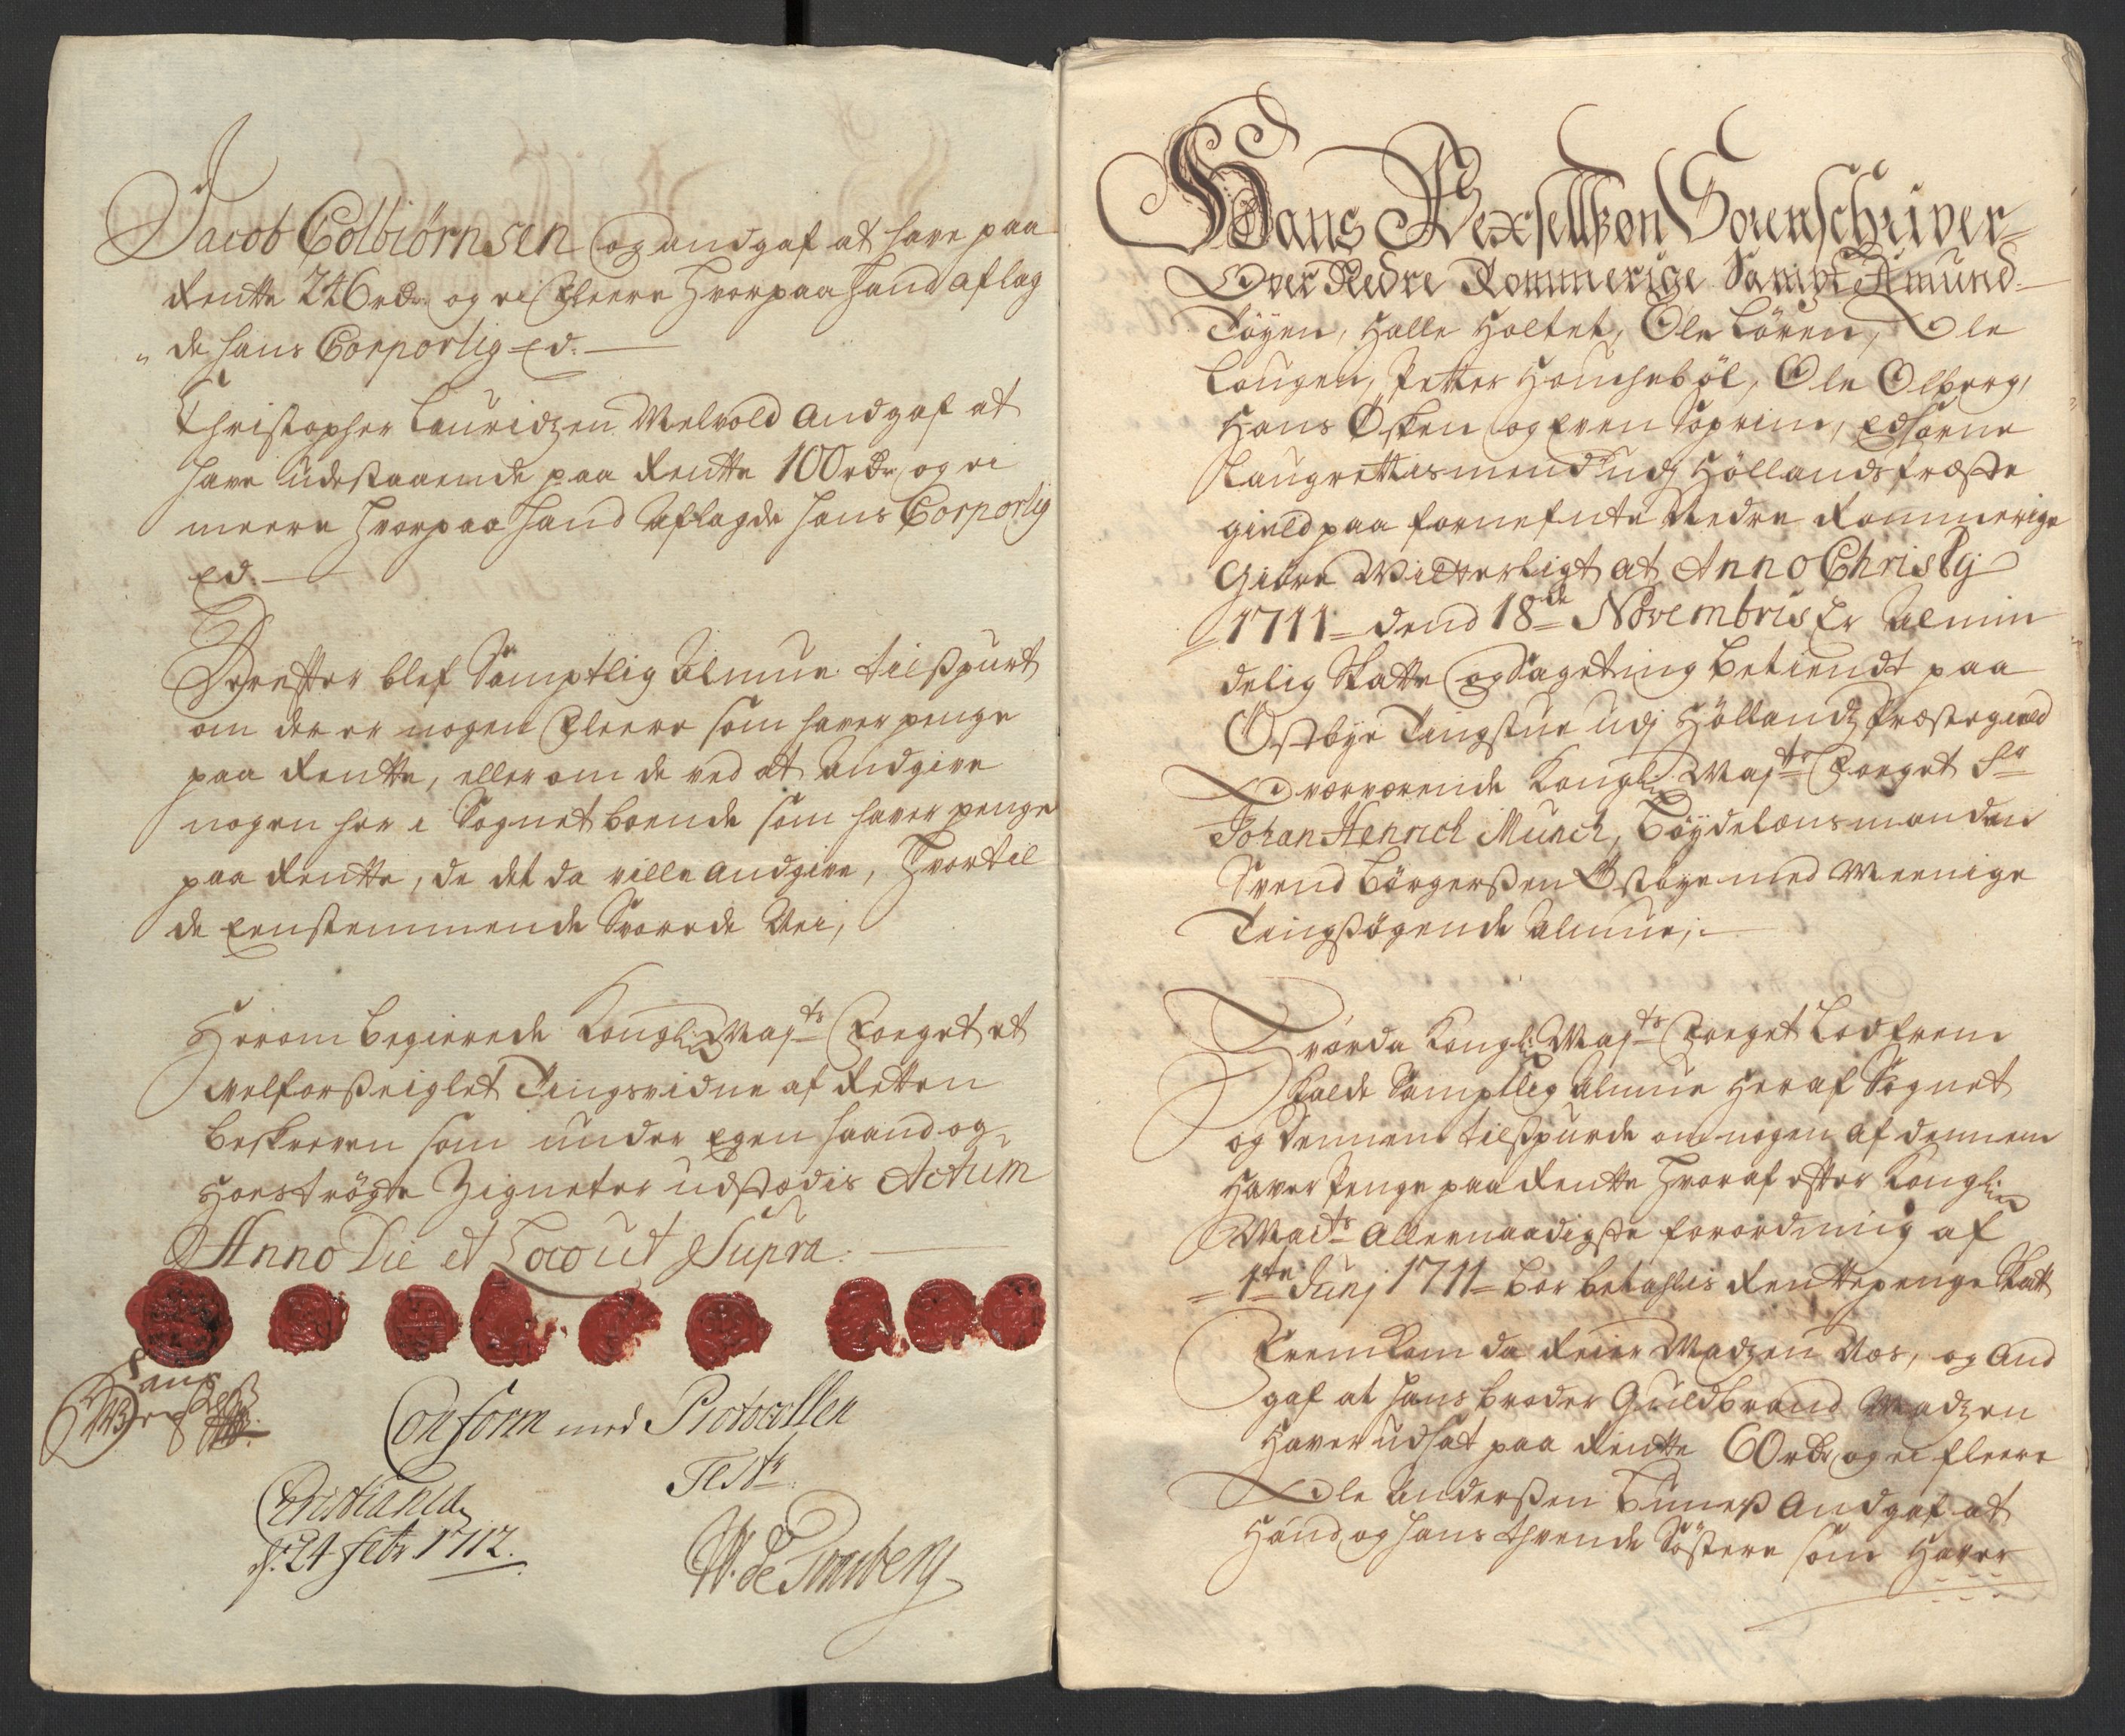 Jacob Colbiörnsen og andgaf at have paa
Rentte 226 rdr. og ei fleere hvorpaa hand aflag
de hans Corporlig Ed.
Christopher Lauridzen Melvold andgaf at
have udestaaende paa Rentte 100 rdr og ei
meere hvorpaa hand aflagde hans Corporlig
Ed.
Derefter blef Samptlig Almue tilspurt
om der er nogen fleere som haver penge
paa Rentte, eller om de ved at andgive
nogen her i Sognet boende som haver penge
paa Rentte, de det da ville andgive, hvortil
de Eenstemmende Svarede Nei,
Herom begierede Kongl: May:ts Foeget et
velforseiglet Tingsvidne af Retten
beskreven som under Egen haand og
hoeströgte Zigneter udstædis Actum
Anno Die et Loco ut Supra:
Hans
Conform med Protocollen
Test:
Christiania
d: 24 febr 1712.
W. de Tonsberg
Hans Rexsellßøn Sorenschriver
Over Nedre Rommerige Sampt Amund
Töyen, Halle Holtet, Ole Lören, Ole
Lougen, Petter Houcheböl, Ole Olberg,
Hans Østen og Even Soprim, Edsorne
Laugrettismend udj Höllands Præste
gield paa fornefnte Nedre Rommerige
Giöre Witterligt at Anno Christj
1711 dend 18de Novembris Er almin
delig Skatte og Sageting betiendt paa
Østbye Tingstue udj Höllandz Præstegield
Overværende Kongl: May:ts Foeget Sr
Johan Henrich Munch, Böydelensmanden
Svend Börgerßen Østbye med Meenige
Tingsögende Almue,
Hvorda Kongl: May:ts Foeget Lod frem
Kalde Samptlig Almue her af Sognet
og dennem tilspurde om nogen af dennem
haver Penge paa Rentte hvoraf efter Kongl:
May:ts Allernaadigste forordning af
1te Junj 1711 bör betahlis Renttepenge Skatt
Fremkom da Reier Madzen Nos, og And
gaf at hans broder Guldbrand Madzen
haver udsat paa Rentte 60 rdr, og ei fleere
Ole Anderßen Buneß Andgaf at
Hand og hans thvende Söstere som haver